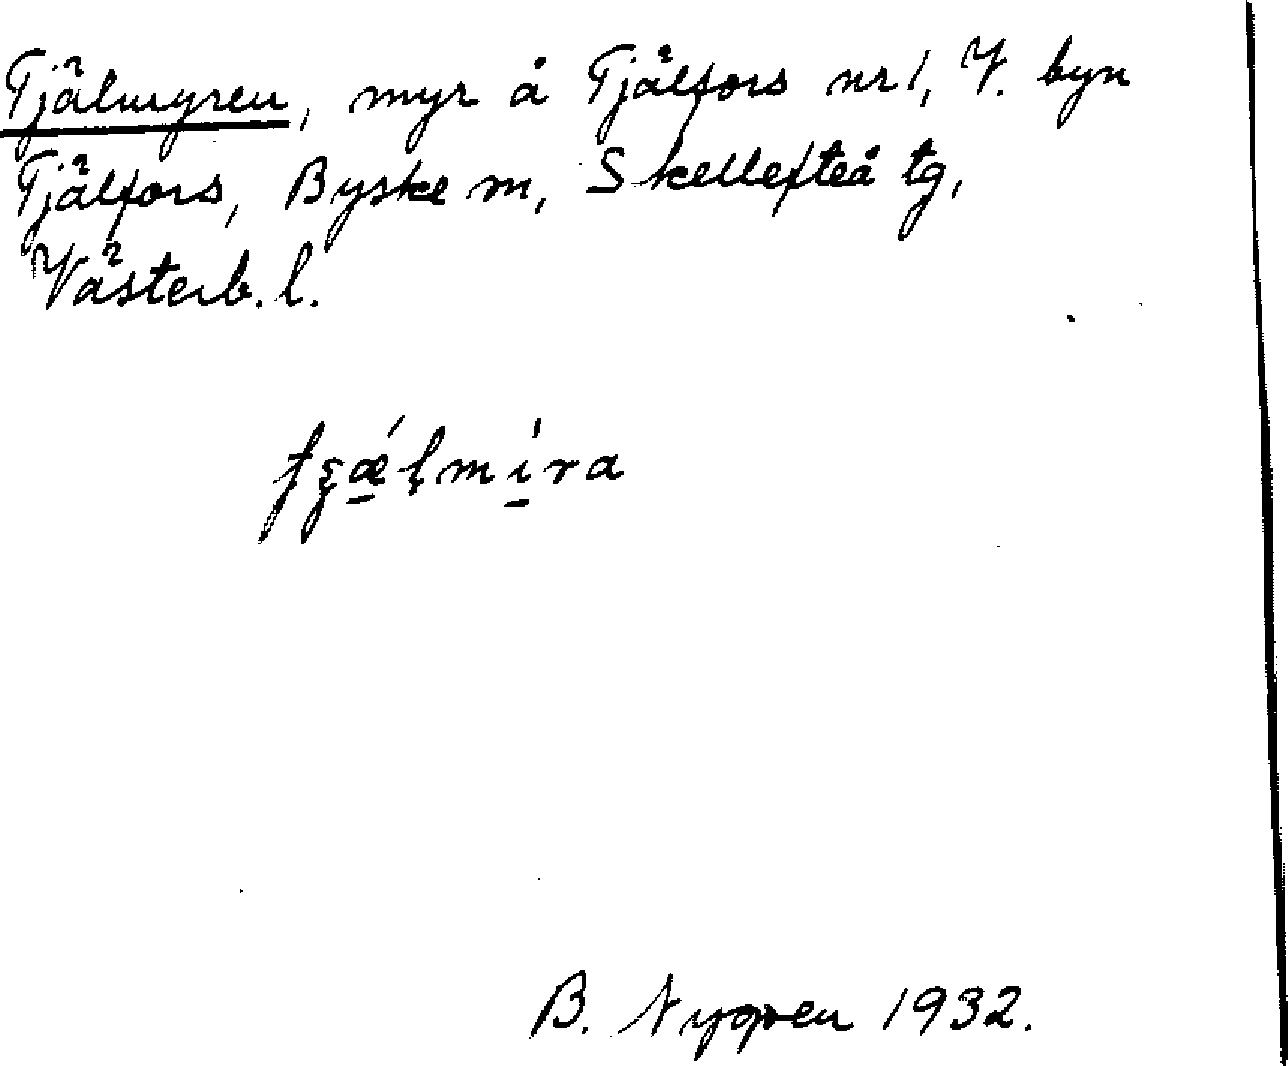 Tjälmyren, myr å Tjälfors nr 1, V. byn
Tjälfors, Byske sn, Skellefteå tg,
Västerb. l.
B. Nygren 1932.